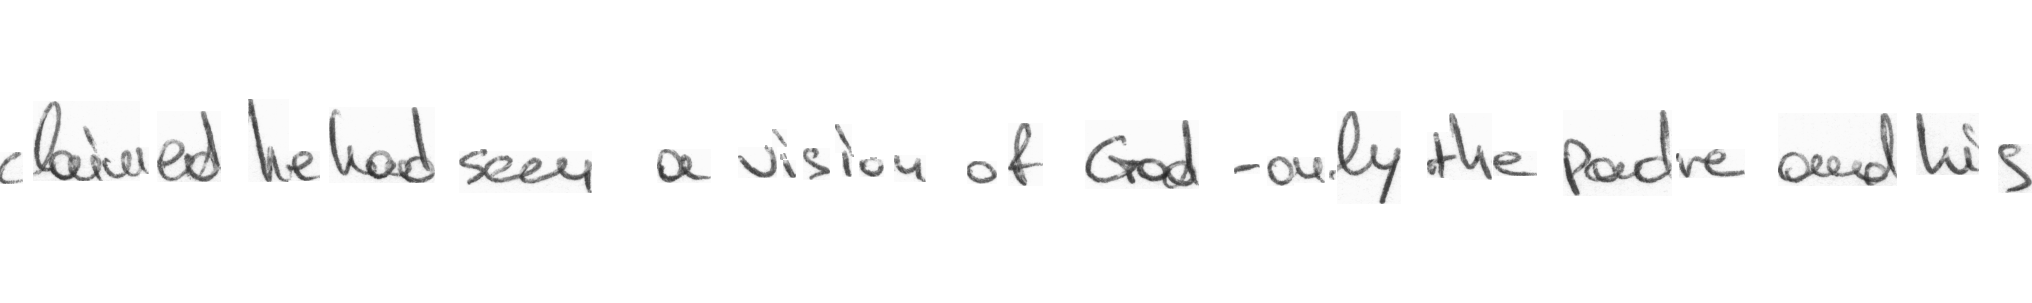 claimed he had seen a vision of God - only the Padre and his